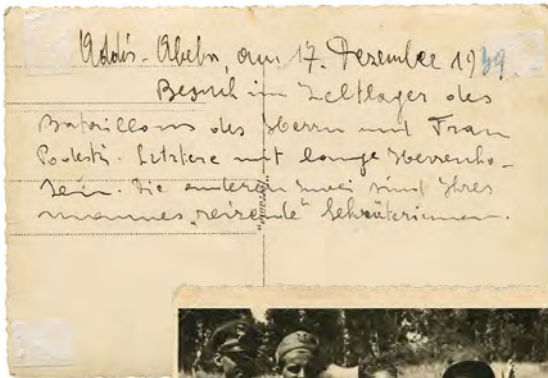 Addis-Abeba, am 17. Dezember 1939.
Besuch im Zeltlager des
Bataillons des Herrn und Frau
Podestà. Letztere mit lange Herrenho-
sein. Die anderen zwei sind Ihres
mannes „reizende“ Sekräterinnen.